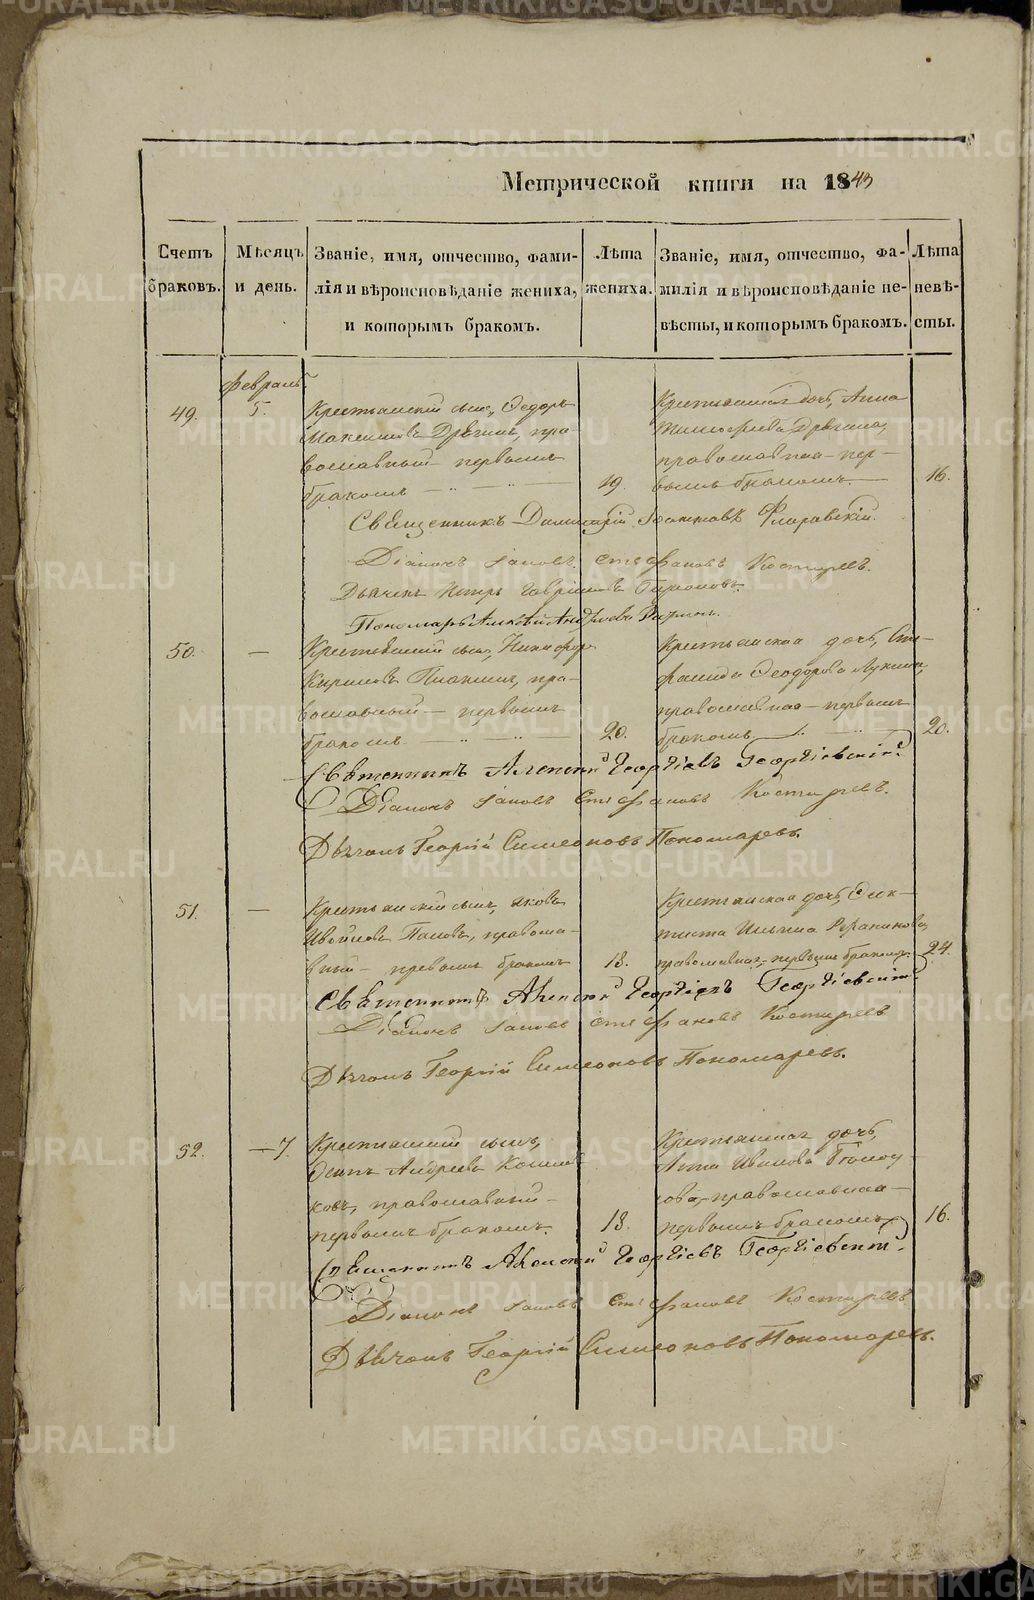 Метрической книги на 1843
Счетъ браковъ.
Мѣсяцъ и день.
Званіе, имя, отчество, фами-
лія и вѣроисповѣданіе жениха,
и которымъ бракомъ.
Лѣта
жениха.
Званіе, имя, отчество, фа-
милія и вѣроисповѣданіе не-
вѣсты, и которымъ бракомъ.
Лѣта
невѣ-
сты.
Февраль
49.
5.
Крестьянскій сынъ, Ѳедоръ
Максимовъ, пра-
вославный первымъ
бракомъ
19.
Крестьянская дочь, Анна
Тимофеева
православная пер-
вымъ бракомъ
16.
Священникъ Димитрій Іоанновъ Флоравскій.
Діаконъ Іаковъ Стефановъ Костыревъ.
Дьячекъ Петръ Гавриловъ
Пономарь Алексѣй Андреевъ
50.
—
Крестьянскій сынъ, Никифоръ
Кириловъ, пра-
вославный — первымъ
бракомъ
20.
Крестьянская дочь, Сте-
фанида Ѳеодорова
православная — первымъ
бракомъ
20.
Священникъ Алексій Георгіевъ Георгіевскій.
Діаконъ Іаковъ Стефановъ Костыревъ.
Дьячокъ Георгій Симеоновъ Пономаревъ.
51.
—
Крестьянскій сынъ, Яковъ
Ивановъ Поповъ, правосла-
вный — первымъ бракомъ
18.
Крестьянская дочь,
Ильина
православная, первымъ бракомъ
24.
Священникъ Алексій Георгіевъ Георгіевскій.
Діаконъ Іаковъ Стефановъ Костыревъ
Дьячокъ Георгій Симеоновъ Пономаревъ.
52.
— 7.
Крестьянскій сынъ,
Осипъ Андреевъ
православный —
первымъ бракомъ.
18.
Крестьянская дочь,
Анна Иванова
православная —
первымъ бракомъ
16.
Священникъ Алексій Георгіевъ Георгіевскій.
Діаконъ Іаковъ Стефановъ Костыревъ
Дьячокъ Георгій Симеоновъ Пономаревъ.
METRIKI.GASO-URAL.RU